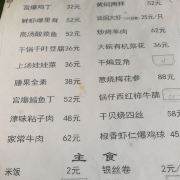 宫爆鸡丁 32元
鲜虾爆果脊 52元
高汤酸菜鱼 52元
干锅千叶豆腐36元
上汤娃娃菜 36元
腰果全素 38元
宫爆鳝鱼丁 52元
津味粘子肉 52元
家常牛肉 62元
黄焖两样 52元
25元/只
炒烤羊肉 62元
大碗有机菜花 36元
干煸豆角
葱烧梅花参 88元
锅仔西红柿牛腩
干贝烧四丝 58元
椒香虾仁爆鸡球 48元
主 食
米饭 2元
银丝卷 2元